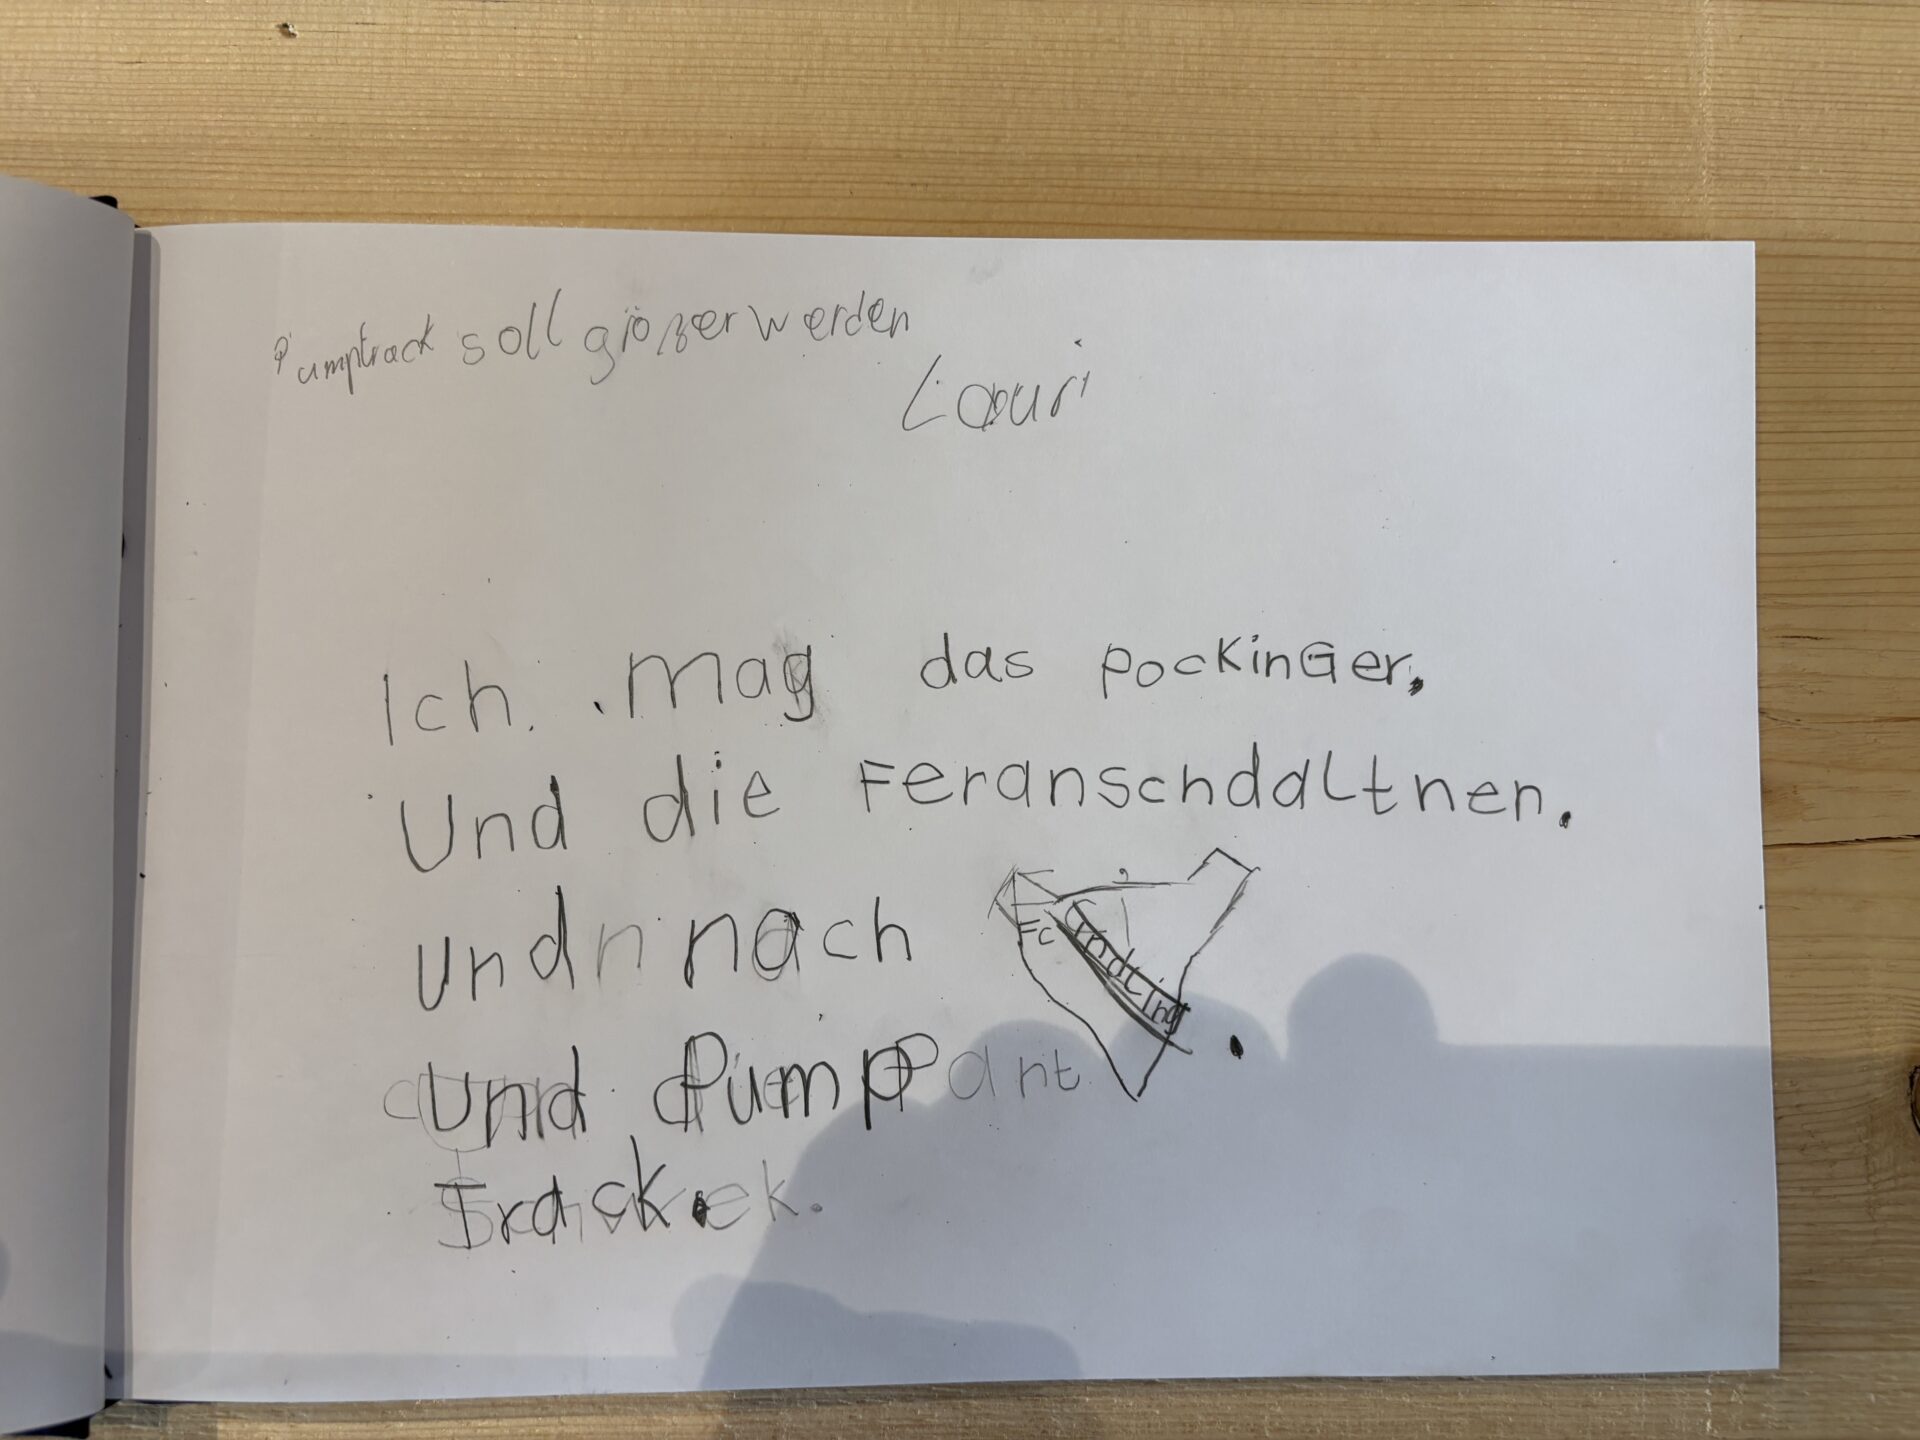 Pumptrack soll größer werden
Lauri
Ich mag das pockinGer.
Und die Feranschdaltnen.
und nach
Fc
Und Pump
Track.